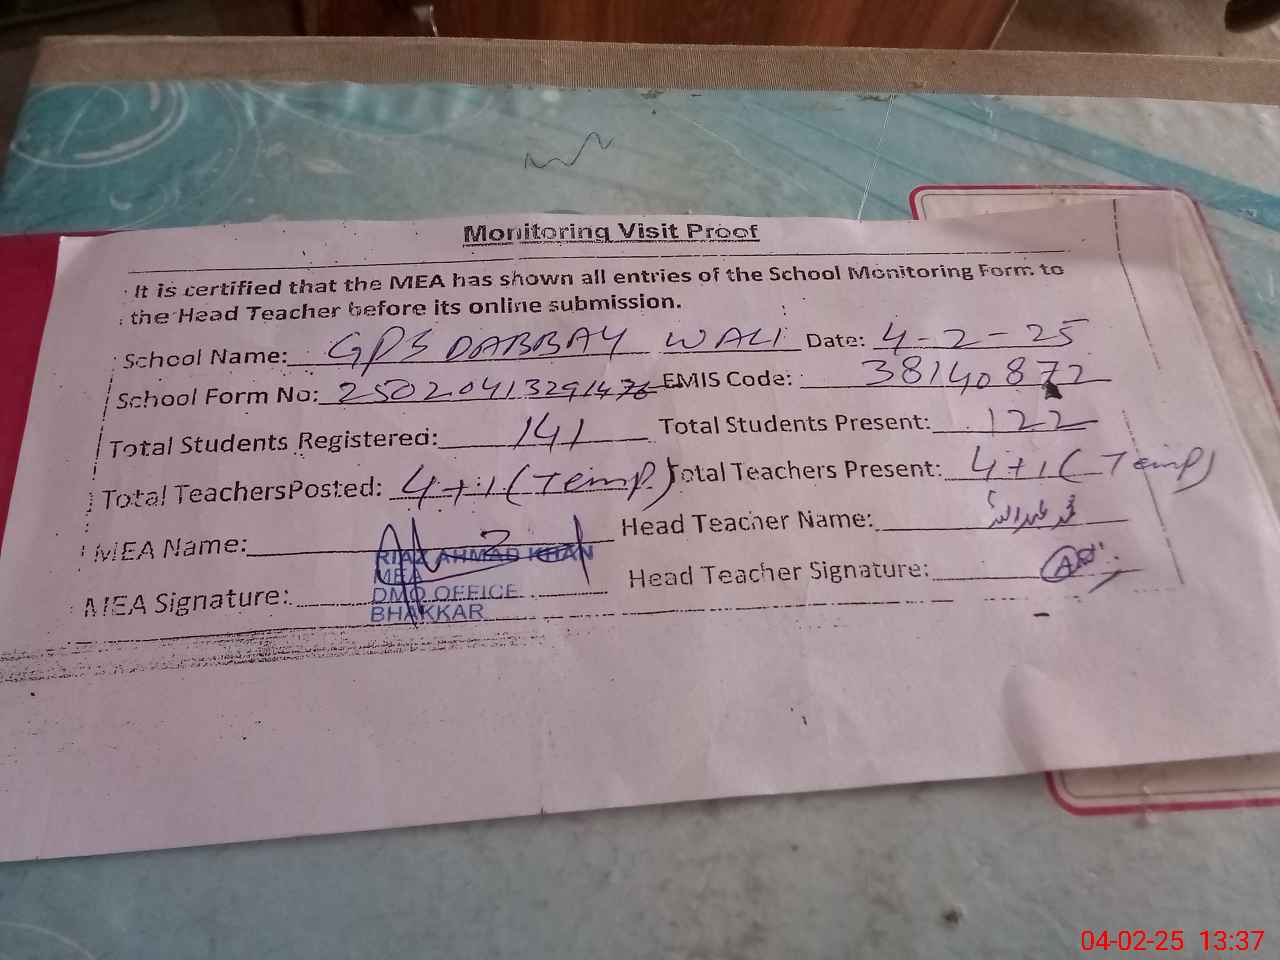 Monitoring Visit Proof
It is certified that the MEA has shown all entries of the School Monitoring Form to
the Head Teacher before its online submission.
School Name: GPS DABBAY WALI Date: 4-2-25
School Form No: 25020413291476 EMIS Code: 38140872
Total Students Registered: 141 Total Students Present: 122
Total TeachersPosted: 4+1 (Temp.) Total Teachers Present: 4+1 (Temp)
MEA Name: Head Teacher Name:
RIAZ AHMAD KHAN
MEA
MEA Signature: Head Teacher Signature:
DMO OFFICE
BHAKKAR
04-02-25 13:37